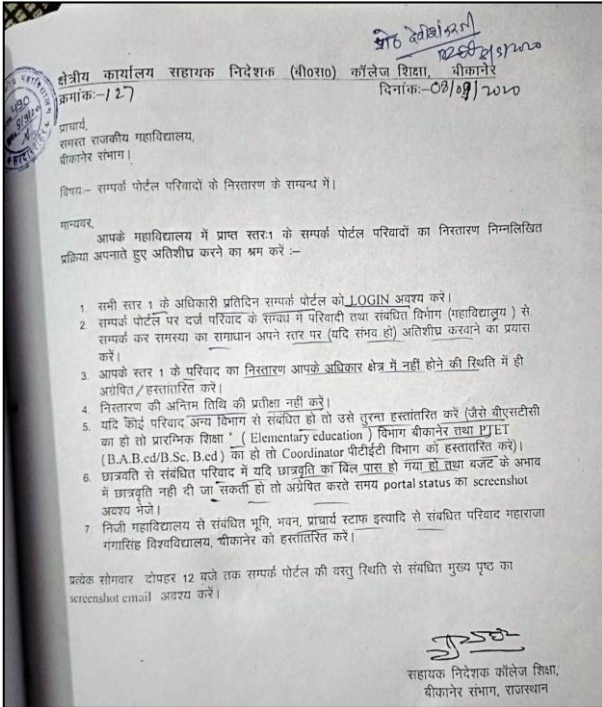 प्रो० देवीशंकर जी
8/9/2020
क्षेत्रीय कार्यालय सहायक निदेशक (बी०रा०) कॉलेज शिक्षा, बीकानेर
क्रमांकः-127 दिनांकः-08/09/2020
490
8/9/20
प्राचार्य,
समस्त राजकीय महाविद्यालय,
बीकानेर संभाग।
विषयः– सम्पर्क पोर्टल परिवादों के निस्तारण के सम्बन्ध में।
मान्यवर,
आपके महाविद्यालय में प्राप्त स्तरः1 के सम्पर्क पोर्टल परिवादों का निस्तारण निम्नलिखित
प्रक्रिया अपनाते हुए अतिशीघ्र करने का श्रम करें :–
1. सभी स्तर 1 के अधिकारी प्रतिदिन सम्पर्क पोर्टल को LOGIN अवश्य करें।
2. सम्पर्क पोर्टल पर दर्ज परिवाद के सम्बध में परिवादी तथा संबंधित विभाग (महाविद्यालय ) से
सम्पर्क कर समस्या का समाधान अपने स्तर पर (यदि संभव हो) अतिशीघ्र करवाने का प्रयास
करें।
3. आपके स्तर 1 के परिवाद का निस्तारण आपके अधिकार क्षेत्र में नहीं होने की स्थिति में ही
अग्रेषित/हस्तांतरित करें।
4. निस्तारण की अन्तिम तिथि की प्रतीक्षा नहीं करें।
5. यदि कोई परिवाद अन्य विभाग से संबंधित हो तो उसे तुरन्त हस्तांतरित करें (जैसे बीएसटीसी
का हो तो प्रारम्भिक शिक्षा ( Elementary education ) विभाग बीकानेर तथा PTET
(B.A.B.ed/B.Sc. B.ed ) का हो तो Coordinator पीटीईटी विभाग को हस्तांतरित करें)।
6. छात्रवति से संबंधित परिवाद में यदि छात्रवृति का बिल पास हो गया हो तथा बजट के अभाव
में छात्रवृति नही दी जा सकती हो तो अग्रेषित करते समय portal status का screenshot
अवश्य भेजे।
7. निजी महाविद्यालय से संबंधित भूमि, भवन, प्राचार्य स्टाफ इत्यादि से संबंधित परिवाद महाराजा
गंगासिंह विश्वविद्यालय, बीकानेर को हस्तांतरित करें।
प्रत्येक सोमवार दोपहर 12 बजे तक सम्पर्क पोर्टल की वस्तु स्थिति से संबंधित मुख्य पृष्ट का
screenshot email अवश्य करें।
सहायक निदेशक कॉलेज शिक्षा,
बीकानेर संभाग, राजस्थान